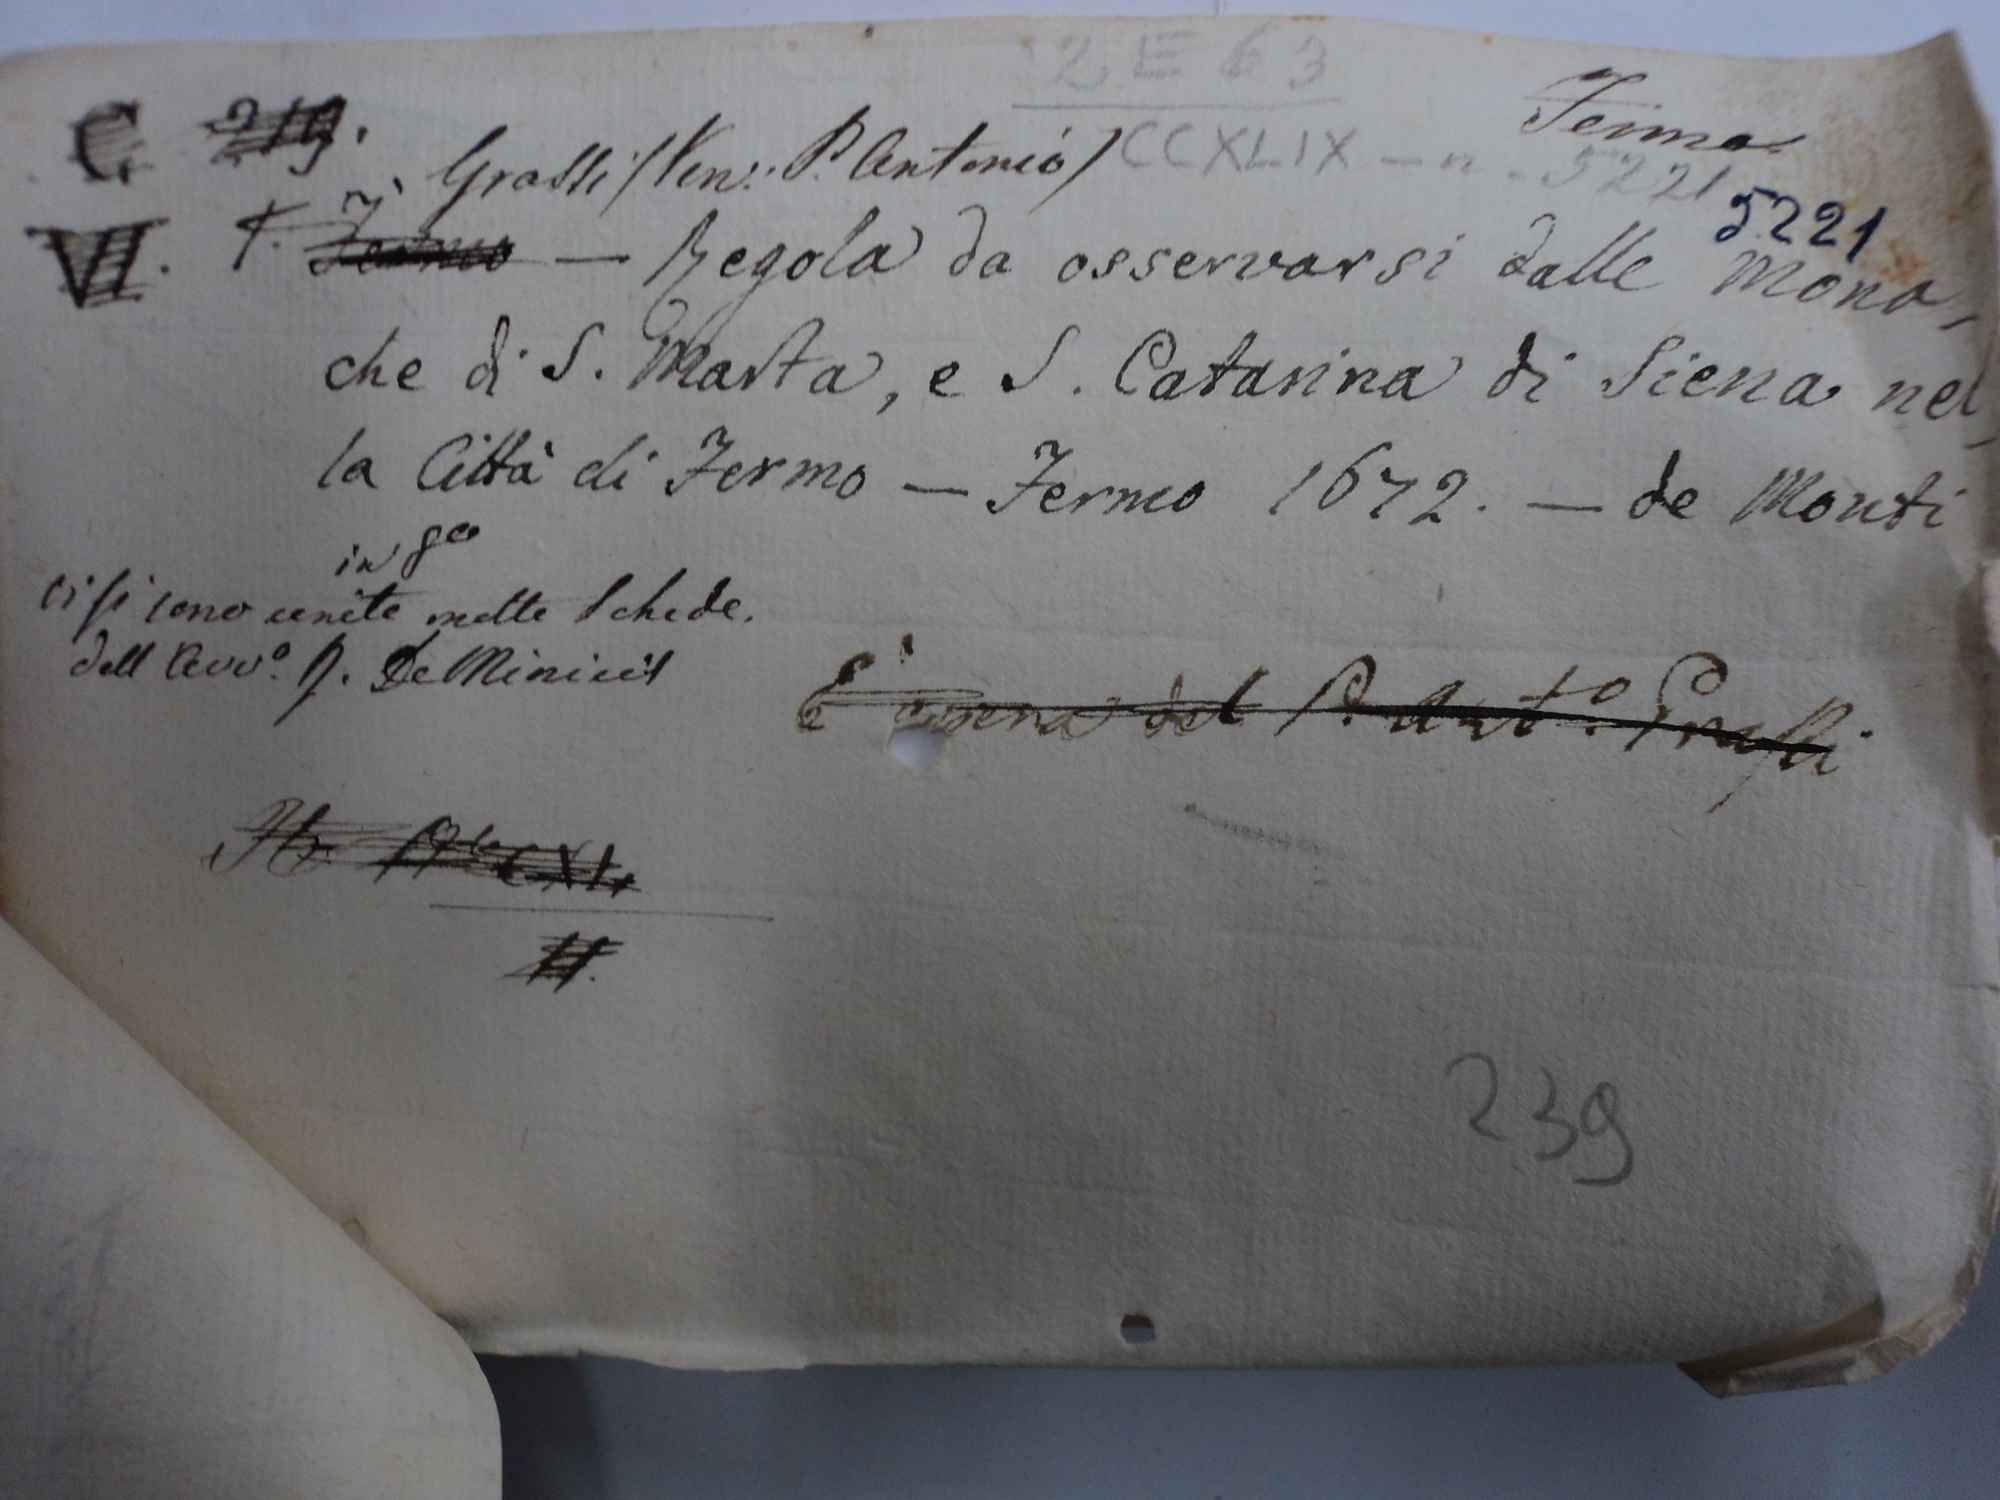 2 E 63
Fermo.
C 219.
Grassi (Ven: P. Antonio)
CCXLIX - n. 5221
5221
VI. F. Fermo — Regola da osservarsi dalle Mona,
che di S. Marta, e S. Catarina di Siena nel,
la Città di Fermo — Fermo 1672. — de Monti
in 8°
ci si sono unite nelle Schede
dell'Avv.° R. De Minicis
È opera del P. Ant.° Grassi
II.
239